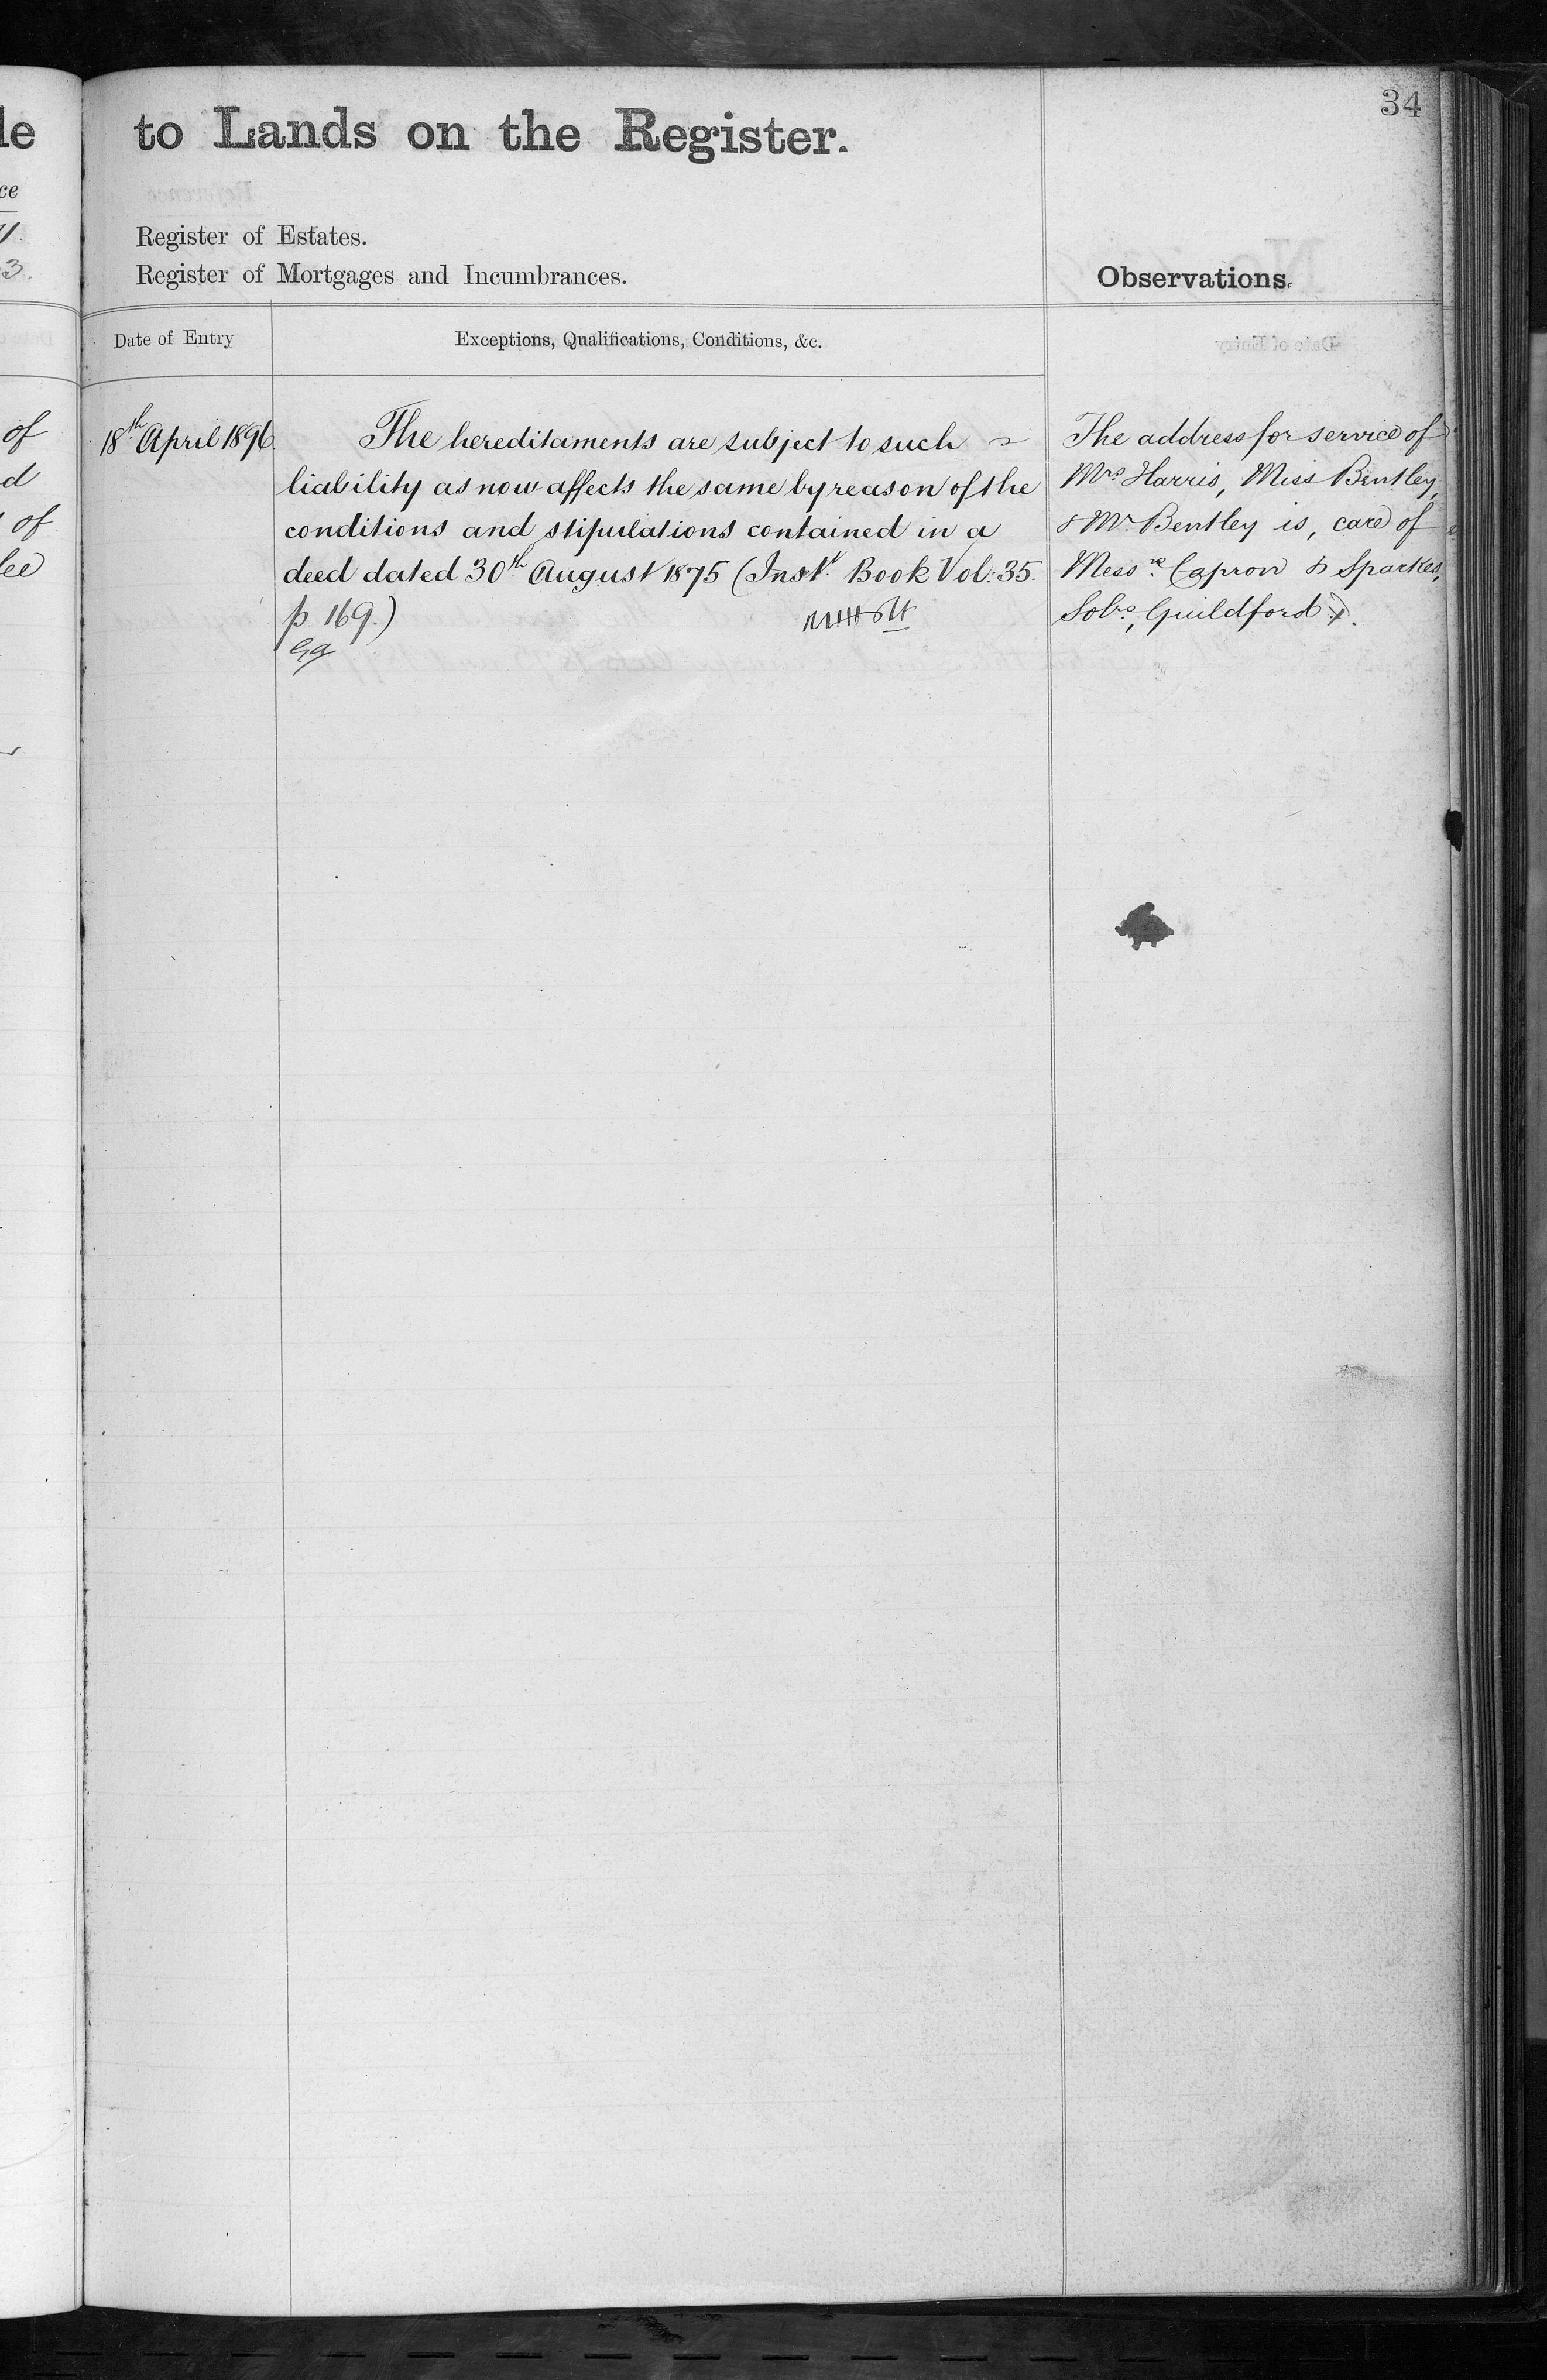 34
le to Lands on the Register.
ce
3.
Register of Estates.
Register of Mortgages and Incumbrances.
Observations.
Date of Entry
Exceptions, Qualifications, Conditions, &c.
of
d
of
lee
18th April 1896.
The hereditaments are subject to such
liability as now affects the same by reason of the
conditions and stipulations contained in a
deed dated 30th August 1875 (Inst. Book Vol: 35.
p. 169.)
The address for service of
Mrs Harris, Miss Bentley,
& Mr. Bentley is, care of
Messrs. Capron & Sparkes,
Solrs, Guildford.